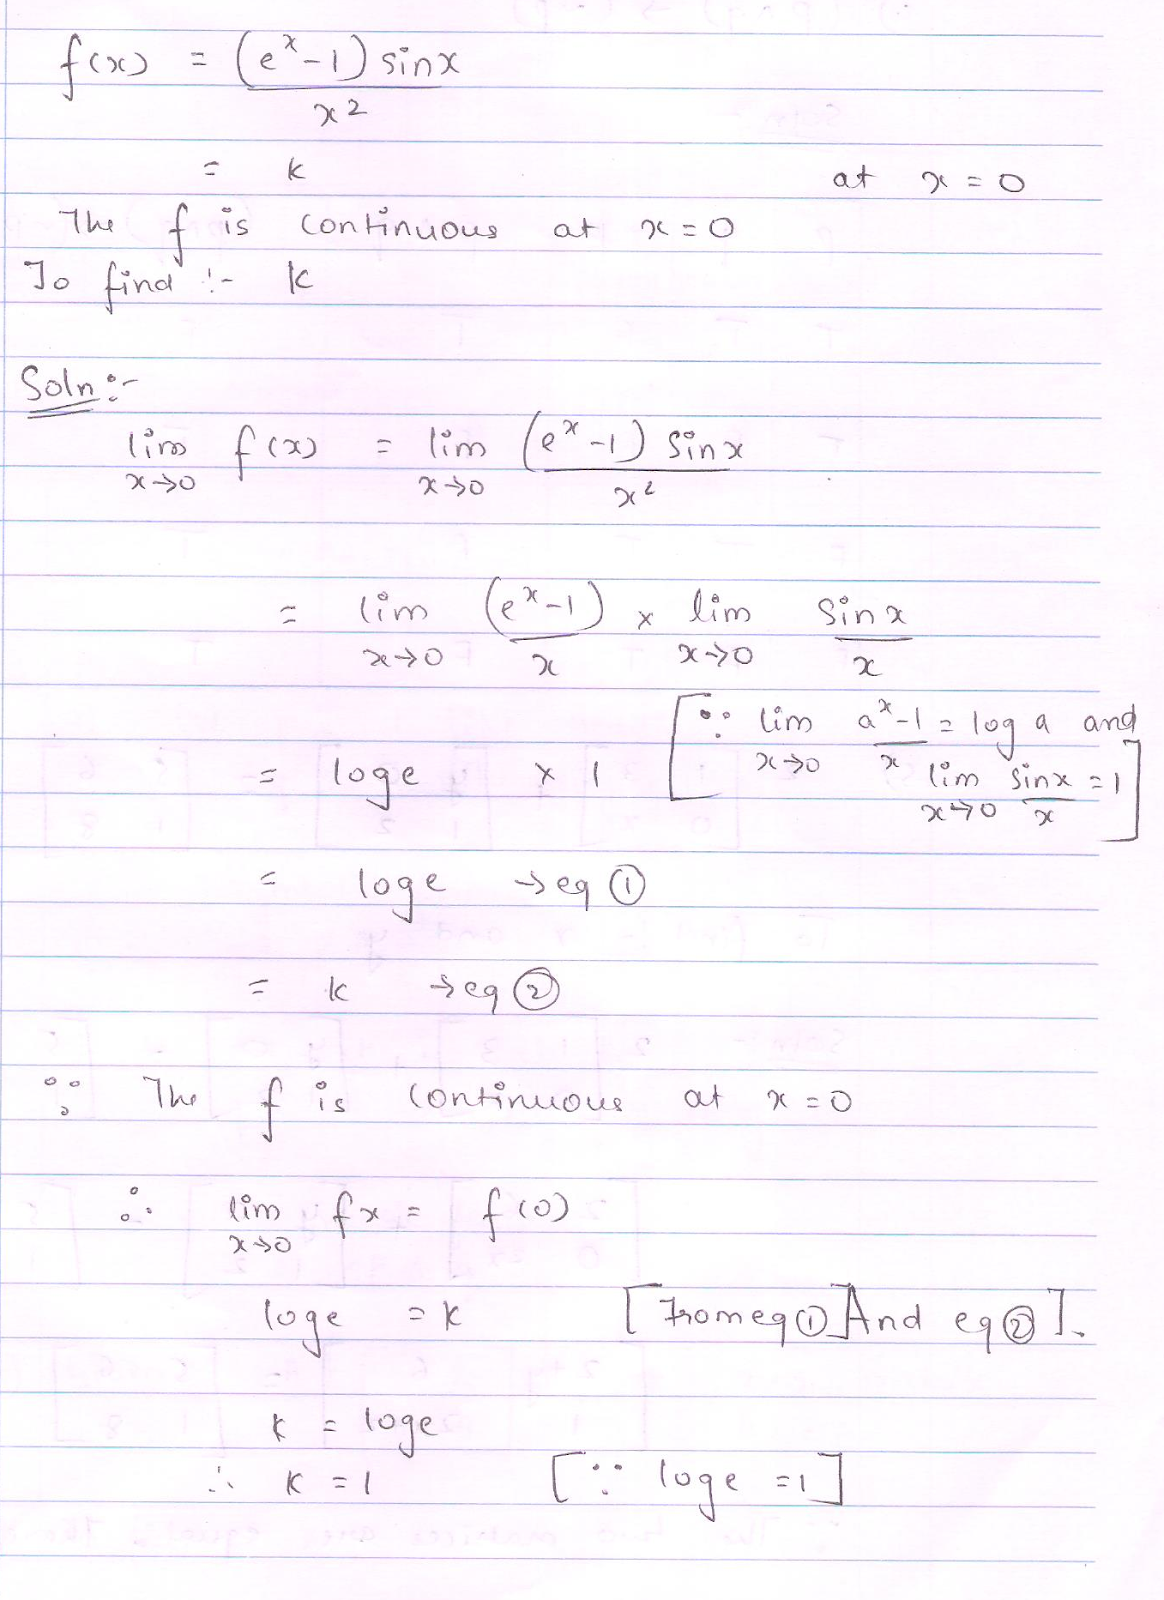 f(x) = (e^x-1) sinx
x2
= k at x = 0
The f is continuous at x=0
To find :- k
Soln:-
lim f(x) = lim (e^x-1) sinx
x→0 x→0 x²
= lim (e^x-1) × lim sinx
x→0 x x→0 x
[∵ lim a^x-1 = log a and
= loge × 1 x→0 x lim sinx = 1
x→0 x ]
= loge → eq ①
= k → eq ②
∵ The f is continuous at x=0
∴ lim fx = f(0)
x→0
loge = k [From eq ① And eq ②].
k = loge
∴ k = 1 [∵ loge = 1]